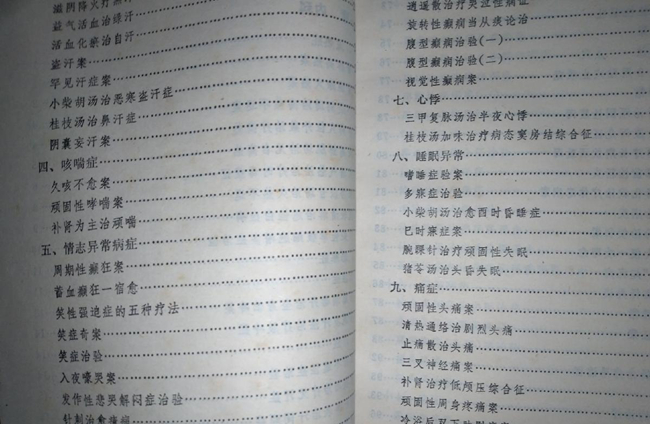 滋阴降火疗
益气活血治绿汗
活血化瘀治自汗
盗汗案
罕见汗症案
小柴胡汤治恶寒盗汗症
桂枝汤治鼻汗症
阴囊妄汗案
四、咳喘症
久咳不愈案
顽固性哮喘案
补肾为主治顽喘
五、情志异常病症
周期性癫狂案
蓄血癫狂一宿愈
笑性强迫症的五种疗法
笑症专案
笑症治验
入夜嚎哭案
发作性悲哭解闷症治验
针刺治愈
逍遥散治疗哭泣性癫症
旋转性癫痫当从痰论治
腹型癫痫治验(一)
腹型癫痫治验(二)
视觉性癫痫案
七、心悸
三甲复脉汤治半夜心悸
桂枝汤加味治疗病态窦房结综合征
八、睡眠异常
嗜睡症验案
多寐症治验
小柴胡汤治愈酉时昏睡症
巳时寐症案
腕踝针治疗顽固性失眠
指苓汤治头昏失眠
九、痛症
顽固性头痛案
清热通络治剧烈头痛
止痛散治头痛
三叉神经痛案
补肾治疗低颅压综合征
顽固性周身疼痛案
冷浴后